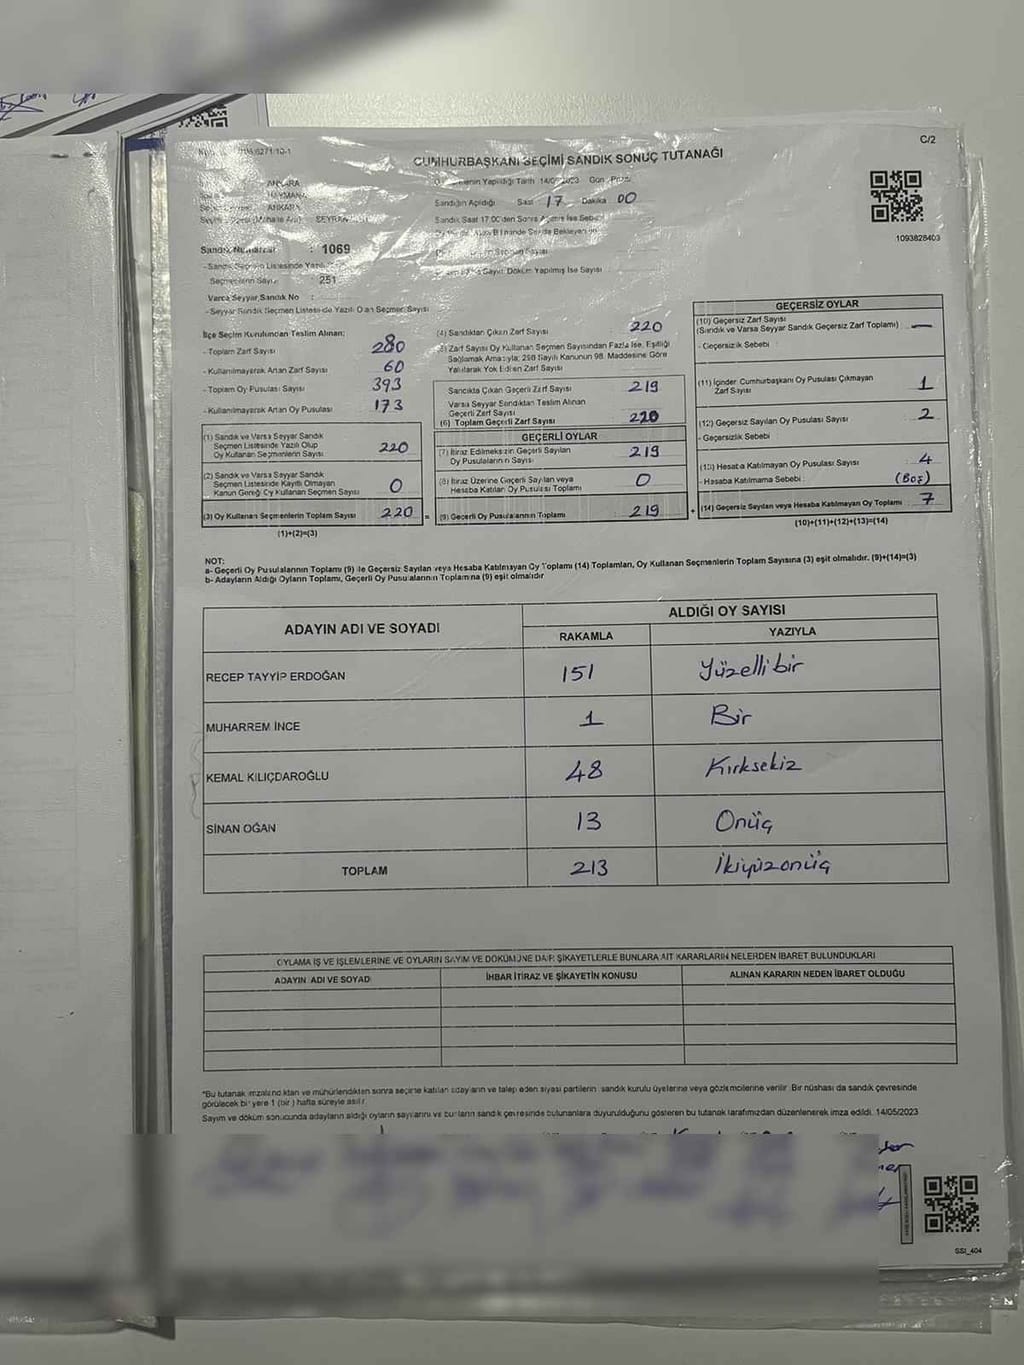 C/2
CUMHURBAŞKANI SEÇİMİ SANDIK SONUÇ TUTANAĞI
ANKARA
ANKARA
Sandığın Açıldığı Saat 17 Dakika 00
1093828403
Sandık Numarası : 1069
251
Varsa Seyyar Sandık No :
- Seyyar Sandık Seçmen Listesinde Yazılı Olan Seçmen Sayısı
İlçe Seçim Kurulundan Teslim Alınan:
- Toplam Zarf Sayısı 280
- Kullanılmayarak Artan Zarf Sayısı 60
- Toplam Oy Pusulası Sayısı 393
- Kullanılmayarak Artan Oy Pusulası 173
(1) Sandık ve Varsa Seyyar Sandık
Seçmen Listesinde Yazılı Olup
Oy Kullanan Seçmenlerin Sayısı 220
(2) Sandık ve Varsa Seyyar Sandık
Seçmen Listesinde Kayıtlı Olmayan
Kanun Gereği Oy Kullanan Seçmen Sayısı 0
(3) Oy Kullanan Seçmenlerin Toplam Sayısı 220
(1)+(2)=(3)
(4) Sandıktan Çıkan Zarf Sayısı 220
(5) Zarf Sayısı Oy Kullanan Seçmen Sayısından Fazla İse, Eşitliği
Sağlamak Amacıyla; 298 Sayılı Kanunun 98. Maddesine Göre
Yakılarak Yok Edilen Zarf Sayısı
Sandıkta Çıkan Geçerli Zarf Sayısı 219
Varsa Seyyar Sandıktan Teslim Alınan
Geçerli Zarf Sayısı
(6) Toplam Geçerli Zarf Sayısı 220
GEÇERLİ OYLAR
(7) İtiraz Edilmeksizin Geçerli Sayılan
Oy Pusulalarının Sayısı 219
(8) İtiraz Üzerine Geçerli Sayılan veya
Hesaba Katılan Oy Pusulası Toplamı 0
(9) Geçerli Oy Pusulalarının Toplamı 219
GEÇERSİZ OYLAR
(10) Geçersiz Zarf Sayısı
(Sandık ve Varsa Seyyar Sandık Geçersiz Zarf Toplamı) —
- Geçersizlik Sebebi
(11) İçinden Cumhurbaşkanı Oy Pusulası Çıkmayan
Zarf Sayısı 1
(12) Geçersiz Sayılan Oy Pusulası Sayısı 2
- Geçersizlik Sebebi
(13) Hesaba Katılmayan Oy Pusulası Sayısı 4
- Hesaba Katılmama Sebebi : (Boş)
(14) Geçersiz Sayılan veya Hesaba Katılmayan Oy Toplamı 7
(10)+(11)+(12)+(13)=(14)
NOT:
a- Geçerli Oy Pusulalarının Toplamı (9) ile Geçersiz Sayılan veya Hesaba Katılmayan Oy Toplamı (14) Toplamları, Oy Kullanan Seçmenlerin Toplam Sayısına (3) eşit olmalıdır. (9)+(14)=(3)
b- Adayların Aldığı Oyların Toplamı, Geçerli Oy Pusulalarının Toplamına (9) eşit olmalıdır
ADAYIN ADI VE SOYADI
ALDIĞI OY SAYISI
RAKAMLA YAZIYLA
RECEP TAYYİP ERDOĞAN 151 Yüzellibir
MUHARREM İNCE 1 Bir
KEMAL KILIÇDAROĞLU 48 Kırksekiz
SİNAN OĞAN 13 Onüç
TOPLAM 213 İkiyüzonüç
OYLAMA İŞ VE İŞLEMLERİNE VE OYLARIN SAYIM VE DÖKÜMÜNE DAİR ŞİKAYETLERLE BUNLARA AİT KARARLARIN NELERDEN İBARET BULUNDUKLARI
ADAYIN ADI VE SOYADI İHBAR İTİRAZ VE ŞİKAYETİN KONUSU ALINAN KARARIN NEDEN İBARET OLDUĞU
"Bu tutanak imzalandıktan ve mühürlendikten sonra seçime katılan adayların ve talep eden siyasi partilerin sandık kurulu üyelerine veya gözlemcilerine verilir. Bir nüshası da sandık çevresinde
görülecek bir yere 1 (bir) hafta süreyle asılır.
Sayım ve döküm sonucunda adayların aldığı oyların sayılarını ve bunların sandık çevresinde bulunanlara duyurulduğunu gösteren bu tutanak tarafımızdan düzenlenerek imza edildi. 14/05/2023
SSI_404